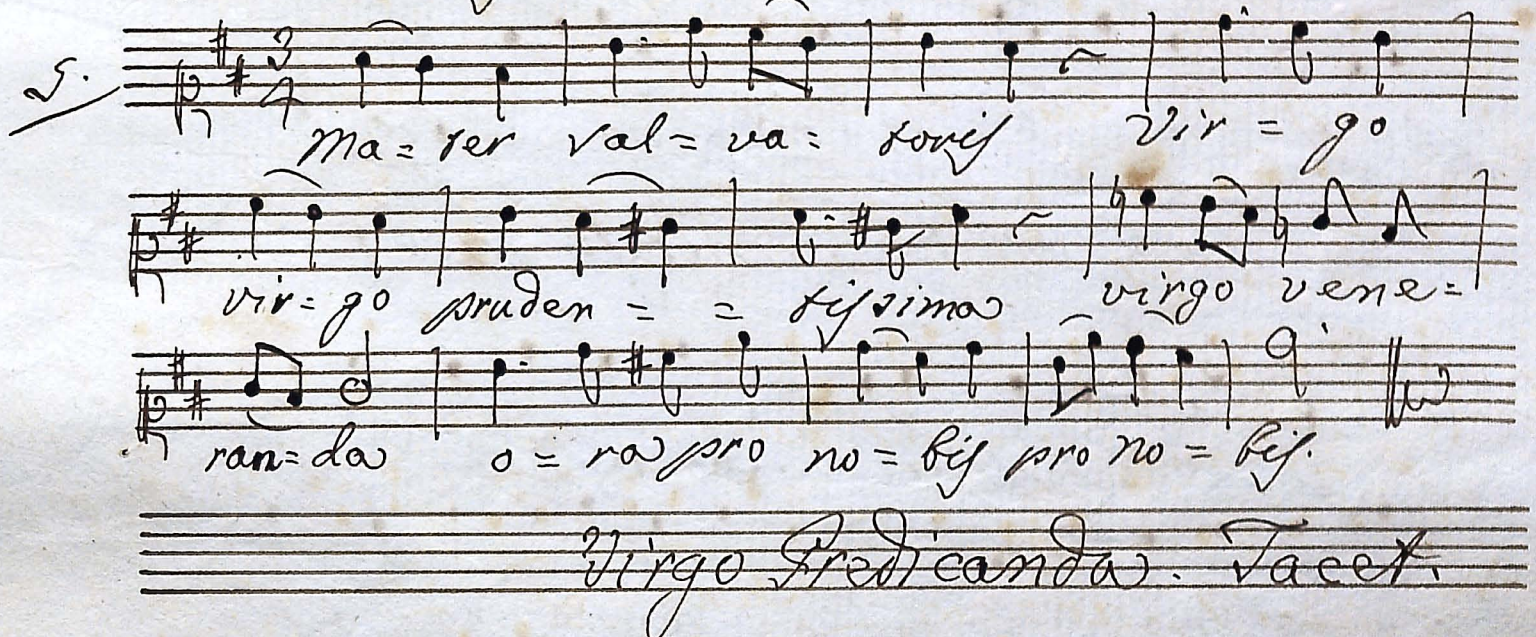 5. 3/4
Ma=ter Sal=va= toris Vir = go
vir=go pruden = = tissima virgo vene=
ran=da o = ra pro no = bis pro no = bis.
Virgo Predicanda. Tacet.